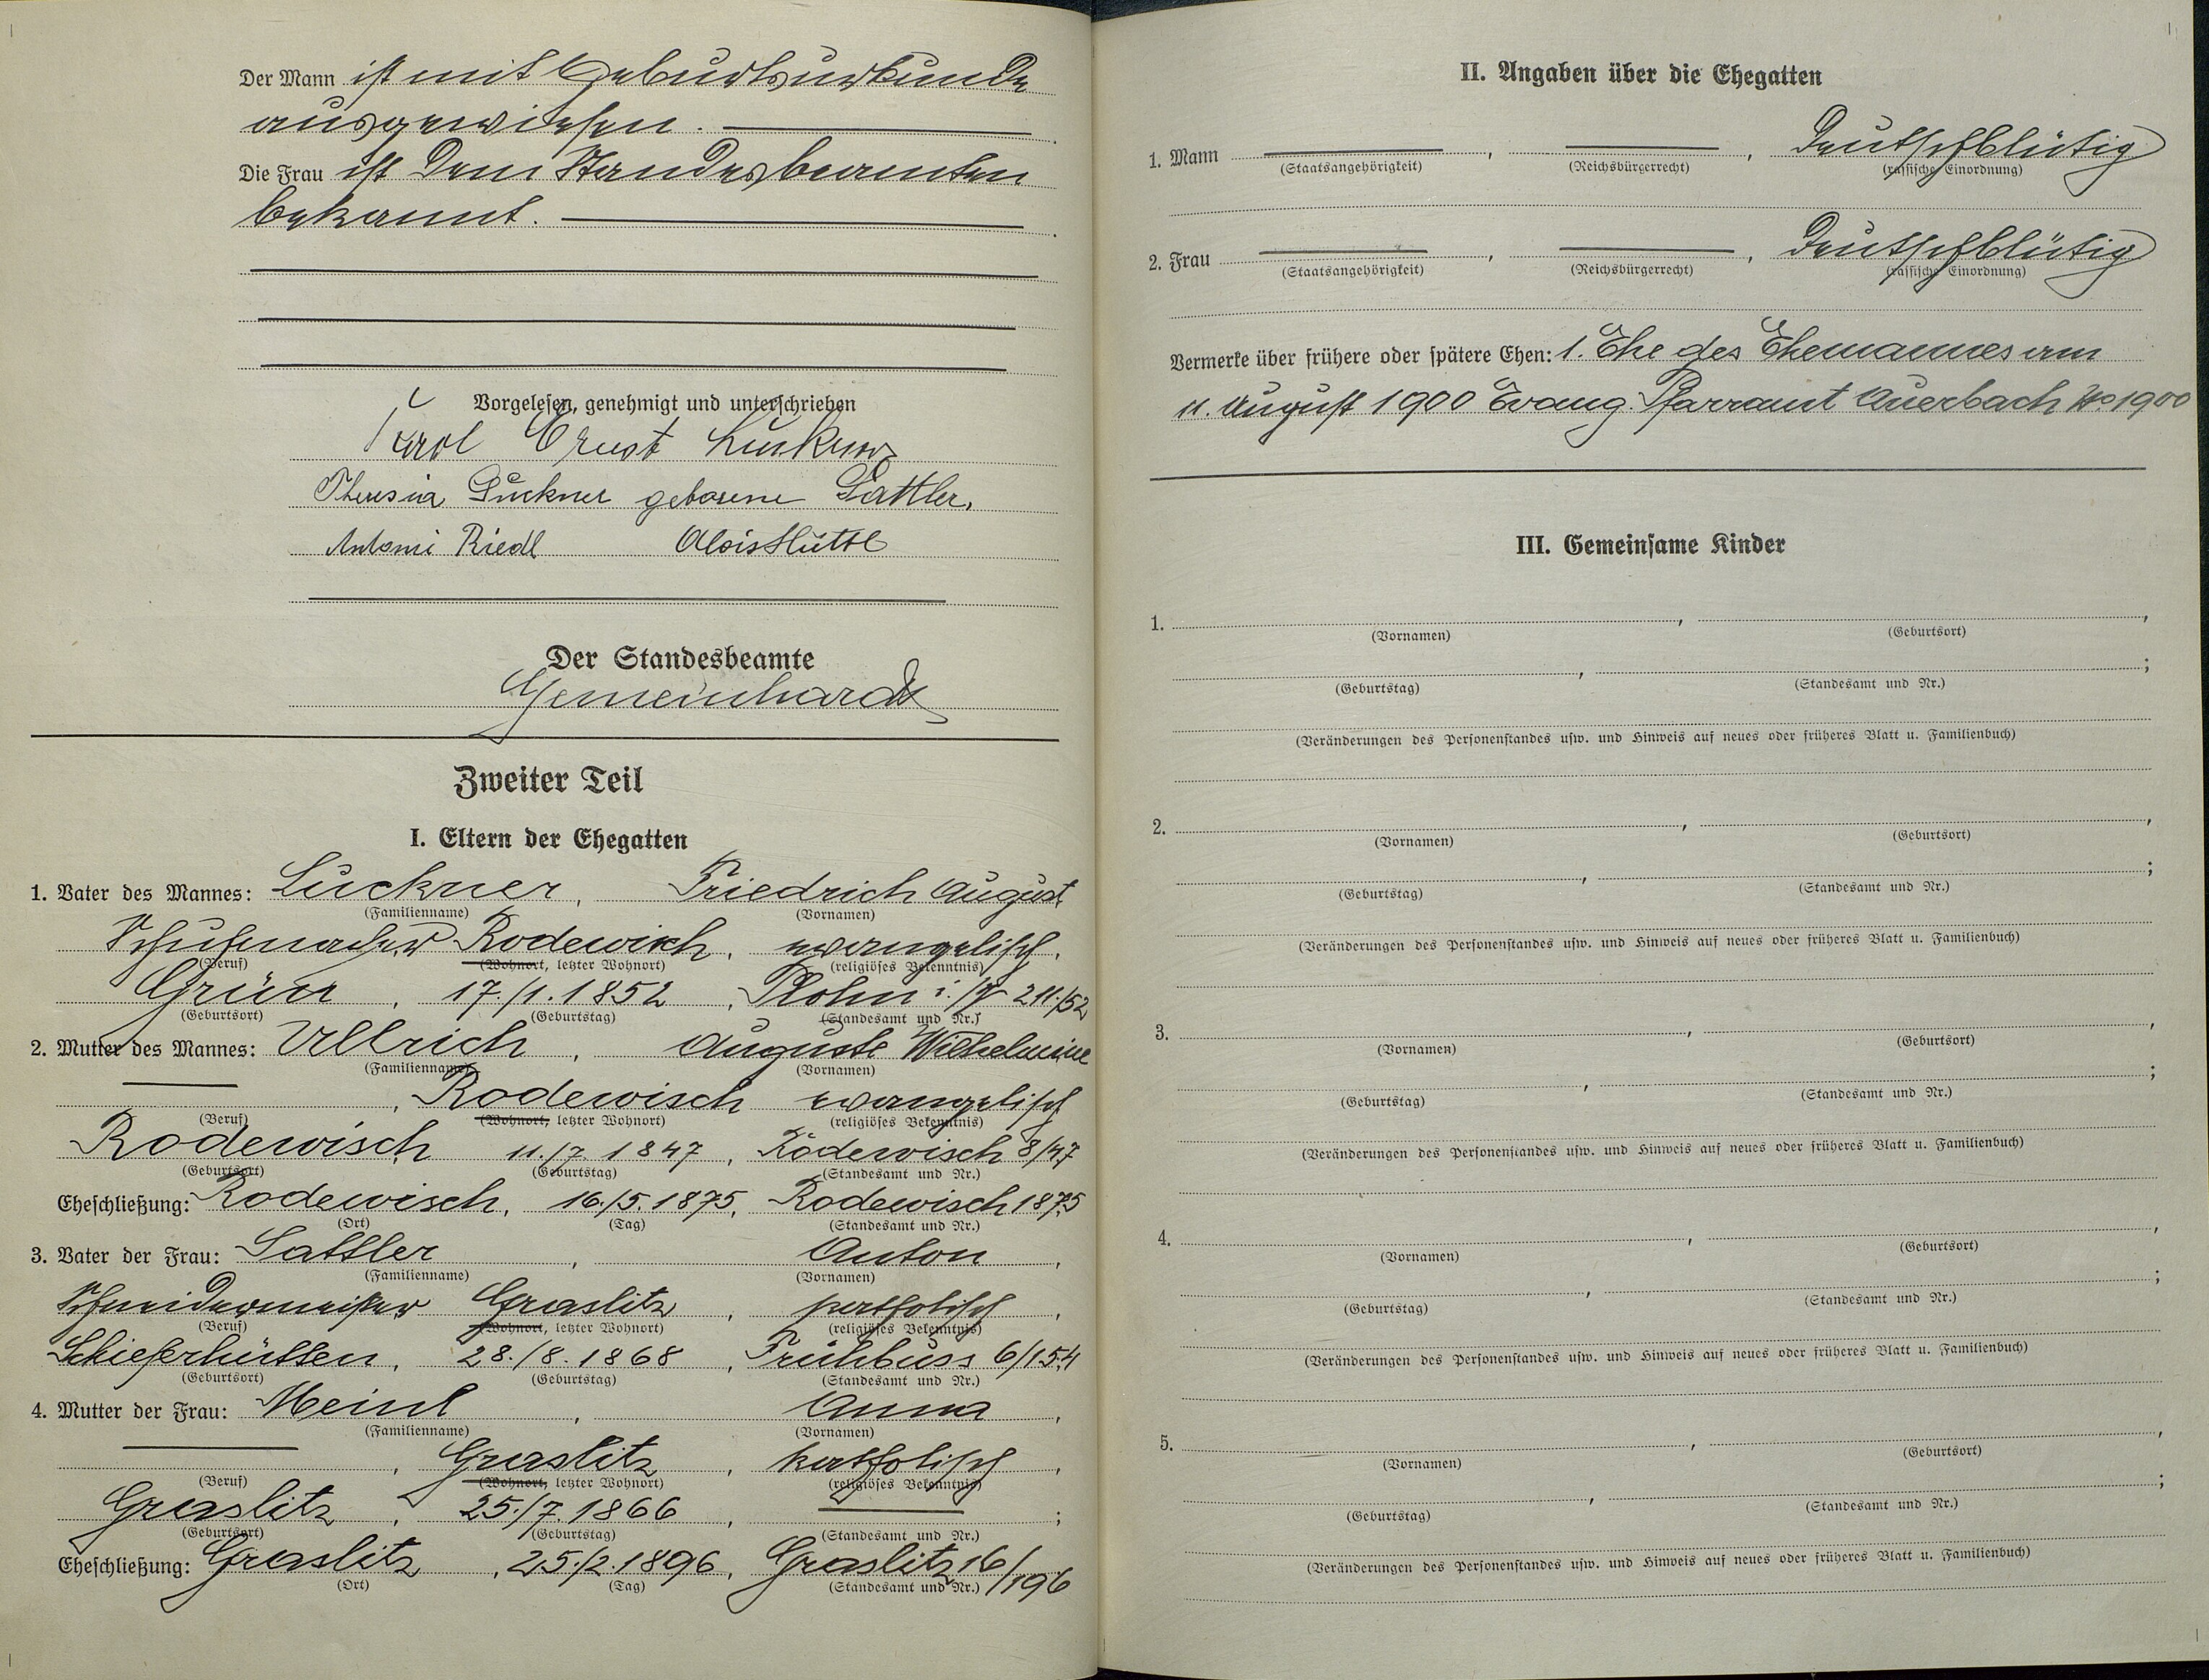 Der Mann ist mit Geburtsurkunde
ausgewiesen.
Die Frau ist dem Standesbeamten
bekannt.
Vorgelesen, genehmigt und unterschrieben
Karl Ernst Luckner
Theresia Luckner geborene Sattler.
Antoni Riedl Alois Hüttl
Der Standesbeamte
Gemeinhardt
Zweiter Teil
I. Eltern der Ehegatten
1. Vater des Mannes: Luckner, Friedrich August
(Familienname) (Vornamen)
Schuhmacher Rodewisch, evangelisch,
(Beruf) (Wohnort, letzter Wohnort) (religiöses Bekenntnis)
Grün, 17./1. 1852, Plohn i./V 211./52
(Geburtsort) (Geburtstag) (Standesamt und Nr.)
2. Mutter des Mannes: Ullrich, Auguste Wilhelmine
(Familienname) (Vornamen)
, Rodewisch evangelisch
(Beruf) (Wohnort, letzter Wohnort) (religiöses Bekenntnis)
Rodewisch 11./7. 1847, Rodewisch 8/47
(Geburtsort) (Geburtstag) (Standesamt und Nr.)
Eheschließung: Rodewisch, 16./5. 1875, Rodewisch 1875
(Ort) (Tag) (Standesamt und Nr.)
3. Vater der Frau: Sattler, Anton,
(Familienname) (Vornamen)
Schneidermeister Graslitz, katholisch,
(Beruf) (Wohnort, letzter Wohnort) (religiöses Bekenntnis)
Schieferhütten, 28./8. 1868, Frühbuss 6/154
(Geburtsort) (Geburtstag) (Standesamt und Nr.)
4. Mutter der Frau: Meinl, Anna,
(Familienname) (Vornamen)
, Graslitz, katholisch,
(Beruf) (Wohnort, letzter Wohnort) (religiöses Bekenntnis)
Graslitz, 25./7. 1866, ;
(Geburtsort) (Geburtstag) (Standesamt und Nr.)
Eheschließung: Graslitz, 25./2. 1896, Graslitz 16/196
(Ort) (Tag) (Standesamt und Nr.)
II. Angaben über die Ehegatten
1. Mann , , Deutschblütig
(Staatsangehörigkeit) (Reichsbürgerrecht) (rassische Einordnung)
2. Frau , , Deutschblütig
(Staatsangehörigkeit) (Reichsbürgerrecht) (rassische Einordnung)
Vermerke über frühere oder spätere Ehen: 1. Ehe des Ehemannes am
11. August 1900 Evang. Pfarramt Auerbach 1900
III. Gemeinsame Kinder
1. , ,
(Vornamen) (Geburtsort)
, ;
(Geburtstag) (Standesamt und Nr.)
(Veränderungen des Personenstandes usw. und Hinweis auf neues oder früheres Blatt u. Familienbuch)
2. , ,
(Vornamen) (Geburtsort)
, ;
(Geburtstag) (Standesamt und Nr.)
(Veränderungen des Personenstandes usw. und Hinweis auf neues oder früheres Blatt u. Familienbuch)
3. , ,
(Vornamen) (Geburtsort)
, ;
(Geburtstag) (Standesamt und Nr.)
(Veränderungen des Personenstandes usw. und Hinweis auf neues oder früheres Blatt u. Familienbuch)
4. , ,
(Vornamen) (Geburtsort)
, ;
(Geburtstag) (Standesamt und Nr.)
(Veränderungen des Personenstandes usw. und Hinweis auf neues oder früheres Blatt u. Familienbuch)
5. , ,
(Vornamen) (Geburtsort)
, ;
(Geburtstag) (Standesamt und Nr.)
(Veränderungen des Personenstandes usw. und Hinweis auf neues oder früheres Blatt u. Familienbuch)